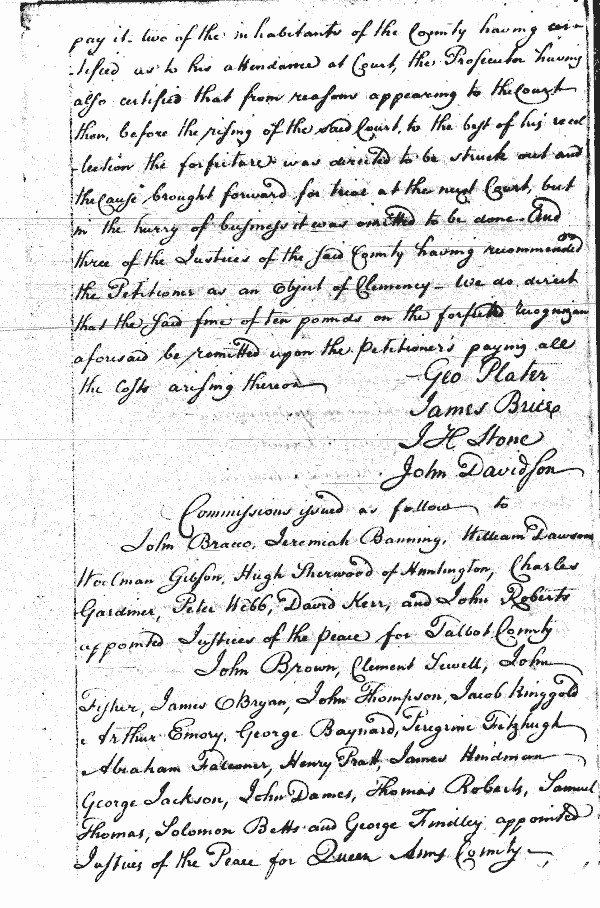 pay it two of the inhabitants of the County having cer-
tified as to his attendance at Court, the Prosecutor having
also certified that from reasons appearing to the Court
then, before the rising of the said Court, to the best of his recol
-lection the forfeiture was directed to be struck out and
the Cause brought forward for trial at the next Court, but
in the hurry of business it was omitted to be done. And
three of the Justices of the said County having recommended
the Petitioner as an Object of Clemency - We do direct
that the said fine of ten pounds on the forfeited recognizan
aforesaid be remitted upon the Petitioner's paying all
the Costs arising thereon
Geo Plater
James Brice
J H Stone
John Davidson
Commissions issued as follow to
John Bracco, Jeremiah Banning, William Dawson
Woolman Gibson, Hugh Sherwood of Huntington, Charles
Gardiner, Peter Webb, David Kerr, and John Roberts
appointed Justices of the peace for Talbot County
John Brown, Clement Sewell, John
Fisher, James OBryan, John Thompson, Jacob Ringgold
Arthur Emory, George Baynard, Peregrine Fitzhugh
Abraham Falconer, Henry Pratt, James Hindman
George Jackson, John Dames, Thomas Roberts, Samuel
Thomas, Solomon Betts and George Findley appointed
Justices of the Peace for Queen Anns County